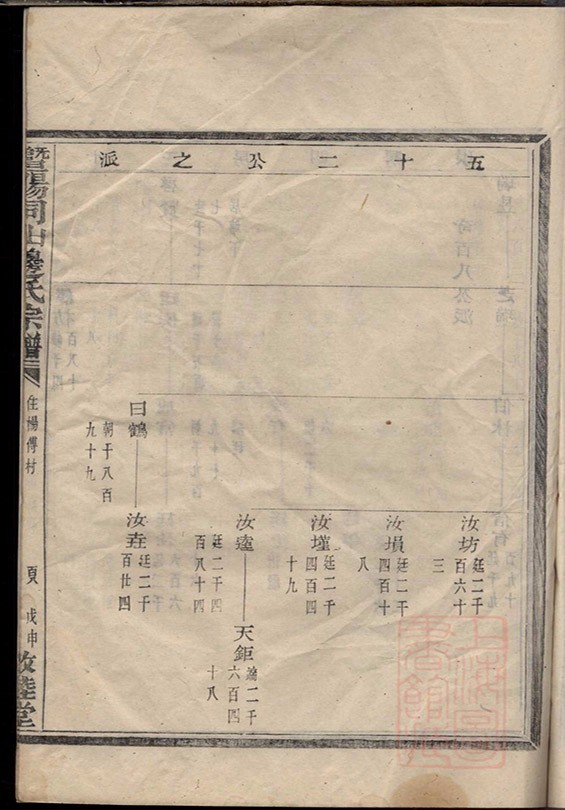 五十二公之派
汝坊
廷二千
百六十
三
汝塤
廷二千
四百十
八
汝墐
廷二千
四百四
十九
汝逵
廷二千四
百八十四
天鉅
滿二千
六百四
十八
曰鶴
朝千八百
九十九
汝垚
廷二千
百廿四
暨陽同山邊氏宗譜
住楊傅村
頁
戊申
敦睦堂